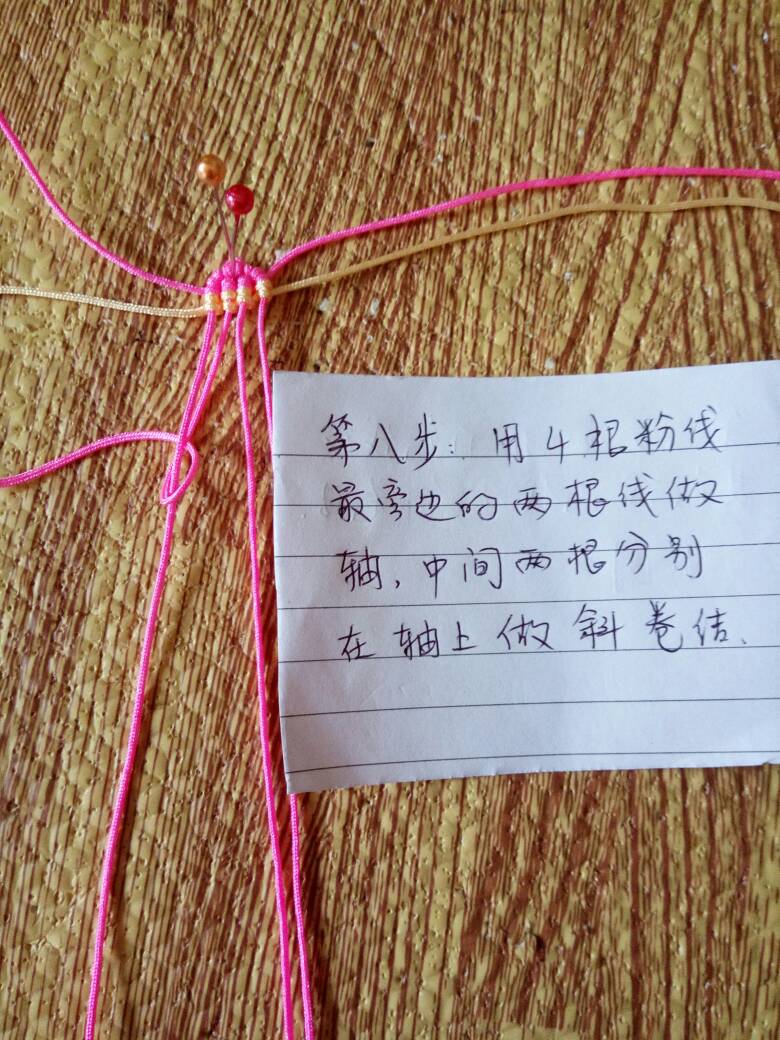 第八步:用4根粉线
最旁边的两根线做
轴,中间两根分别
在轴上做斜卷结.